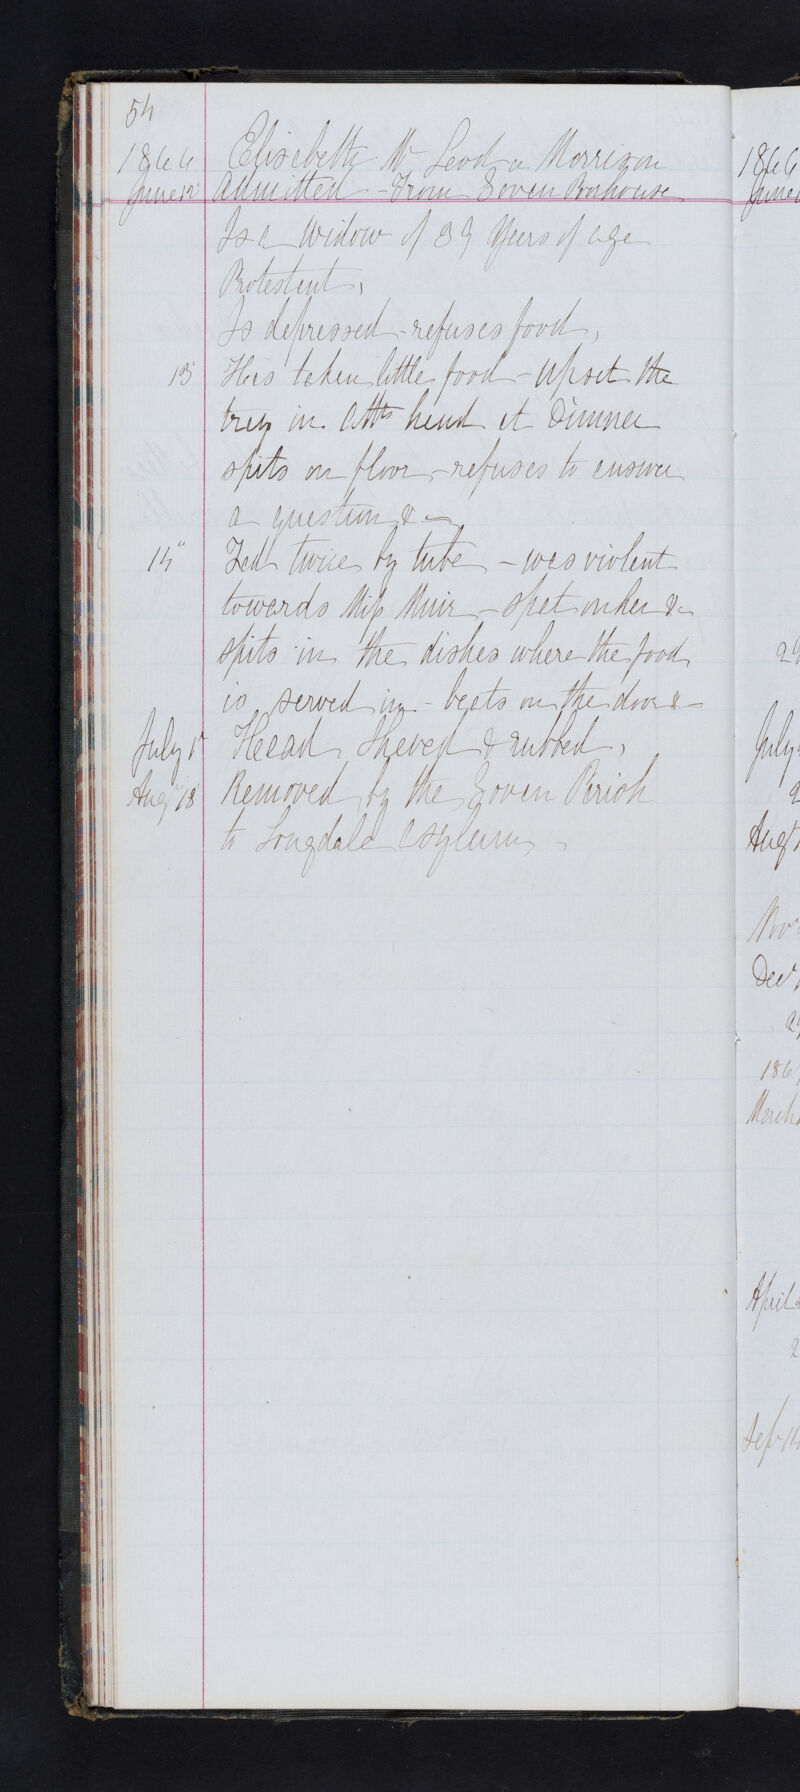 54
1866 Elisabeth Mc Leod or Morrison
June 12 Admitted - From Govan Poorhouse
Is a Widow of 39 Years of age
Protestant,
Is depressed - refuses food,
13 Has taken little food - Upset the
tray in Attts hand at Dinner
spits on floor - refuses to answer
a question &c
14" Fed twice by tube - was violent
towards Miss Muir - spat on her &c
spits in the dishes where the food
is served in - beats on the door &c
July 1st Head Shaved & rubbed,
Augt 18 Removed by the Govan Parish
to Longdale Asylum -
1866
June
29
July
2
Augt
Nov
Decr
29
186
March
April
2
Sep 14